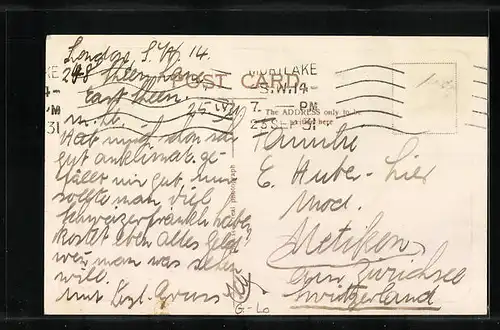 London S.W. 14.
248 Sheen Lane
East Sheen.
POST CARD
MORTLAKE
S.W.14-
7. - PM
23 SEP 31
The ADDRESS only to be
written here
25. IX.
M. L.
Hab mich schon sehr
gut anklimat. ge-
fällt mir gut, nur
sollte man viel
Schweizerfranken haben
kostet eben alles Geld
wenn man was sehen
will.
Mit Hzl. Gruss
Familie
E. Huber-
Mod.
Metiken
am Zürichsee
Switzerland
G-Lo